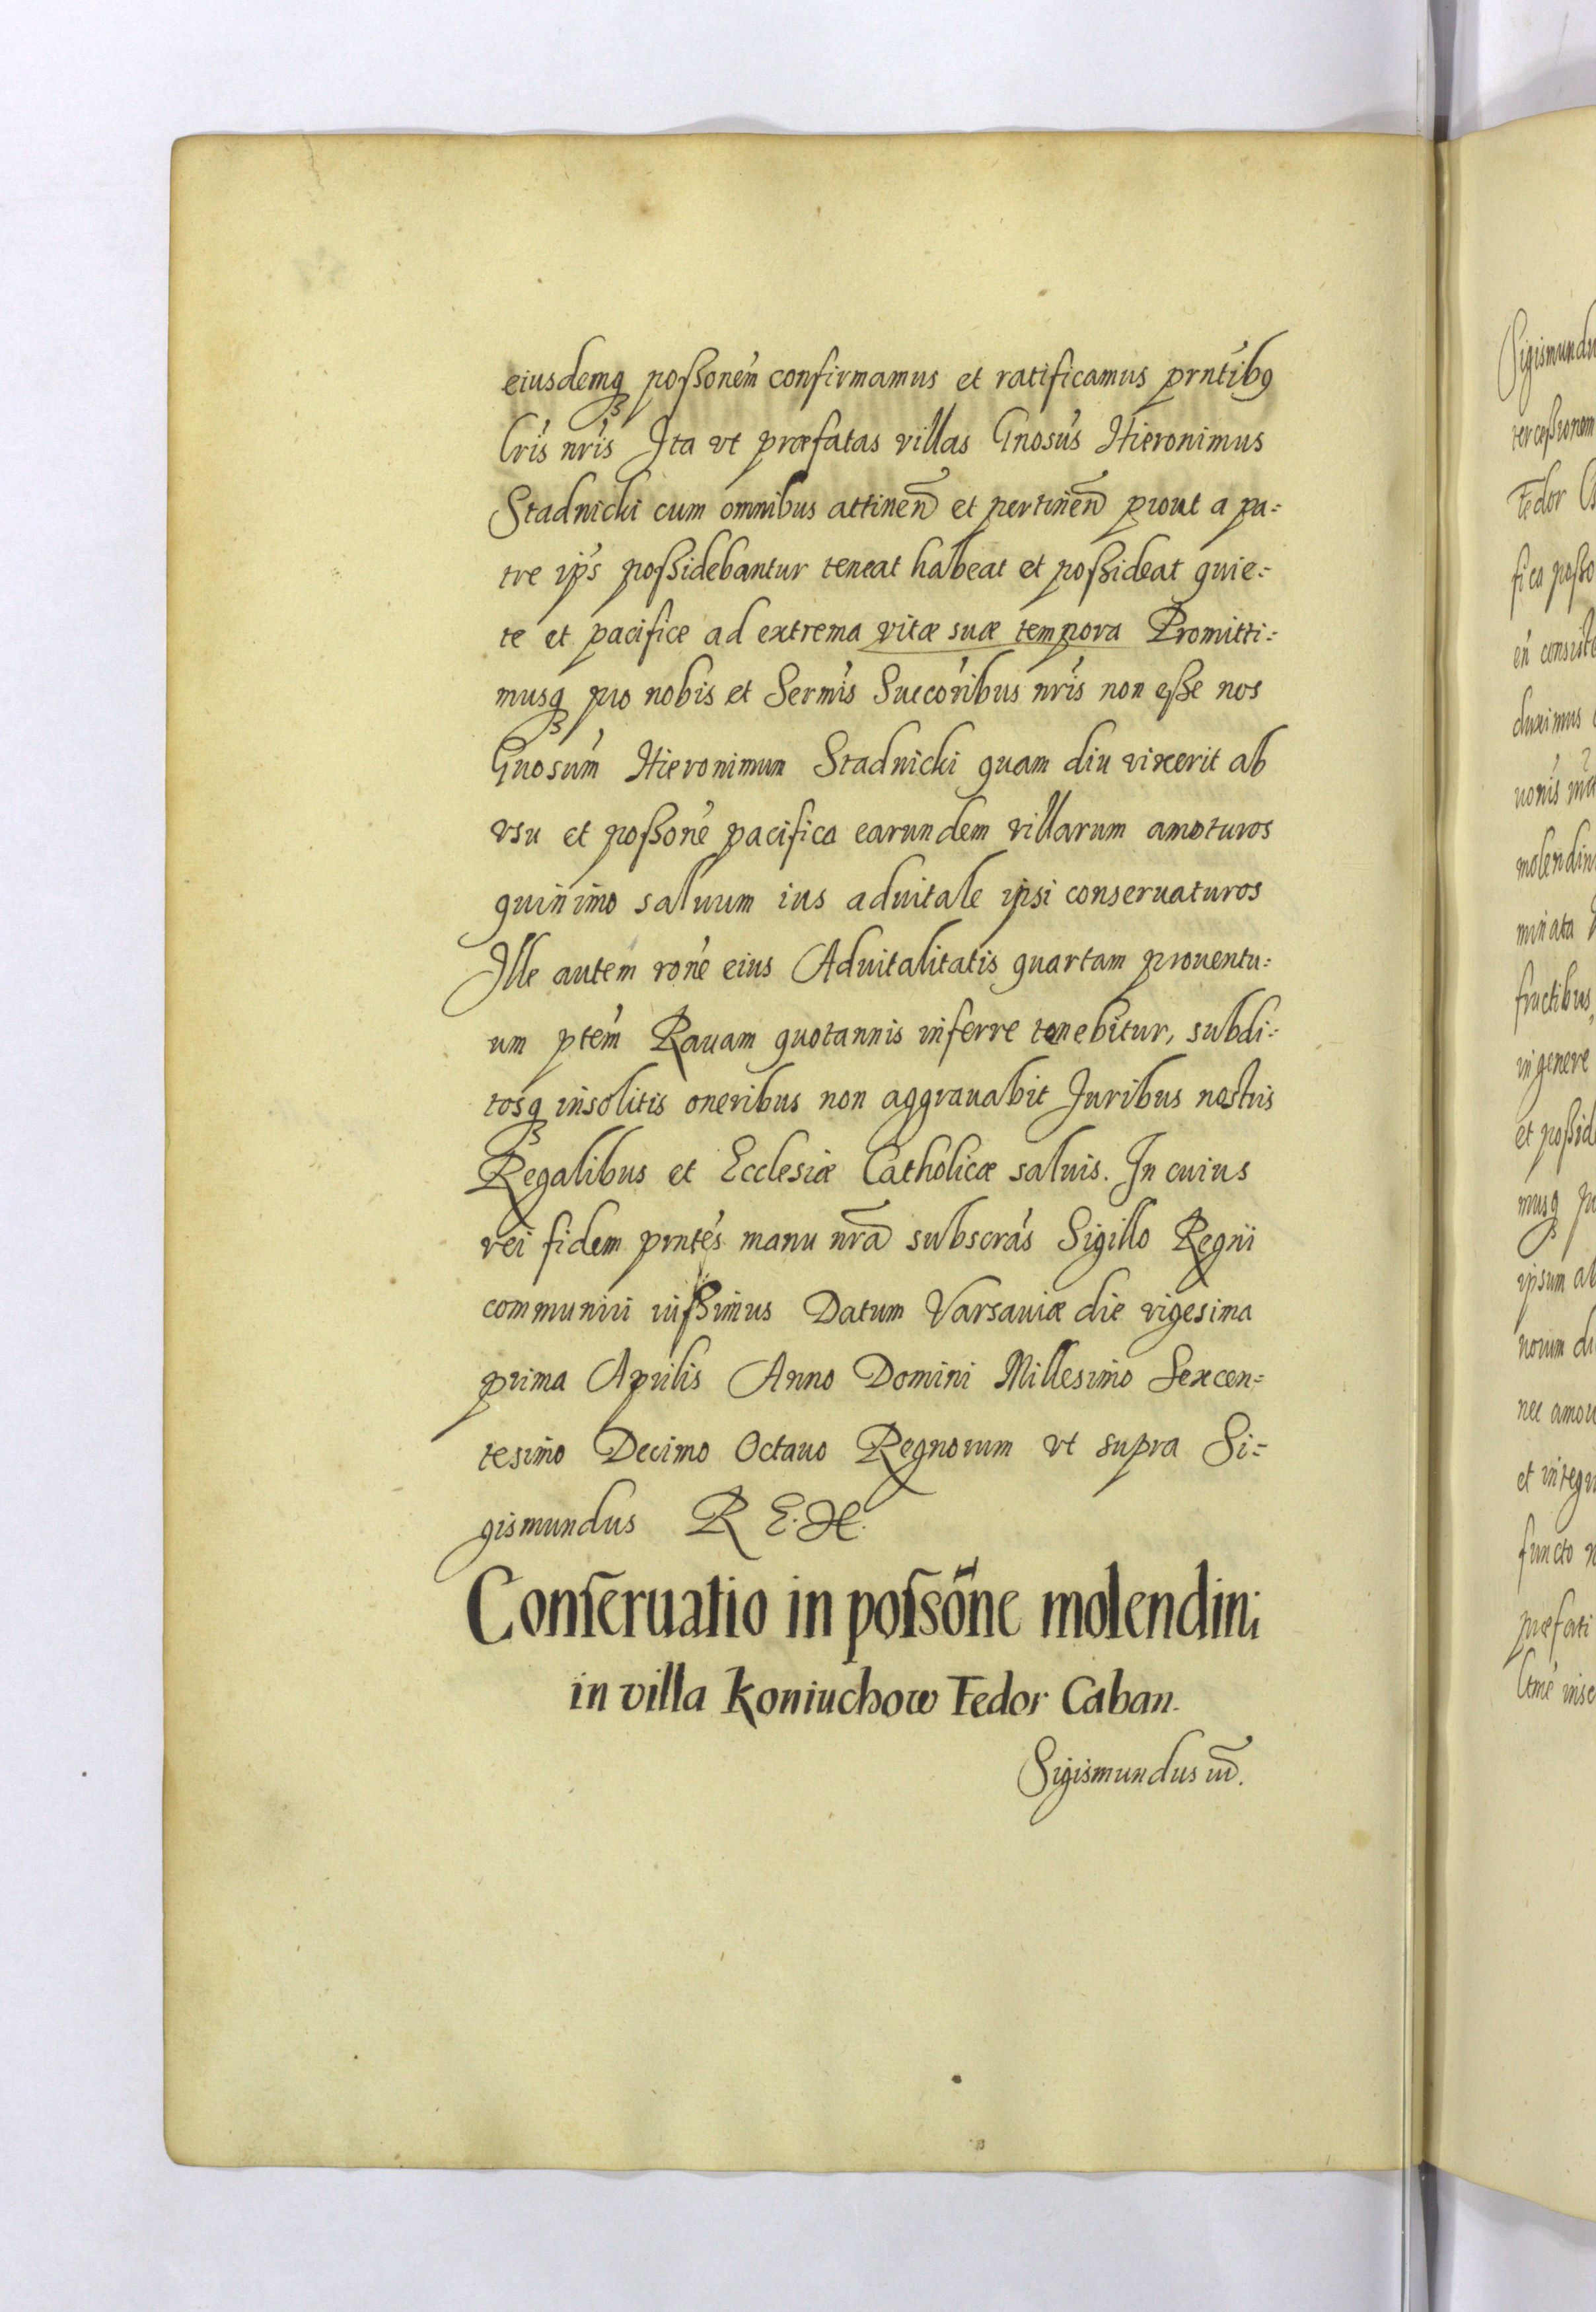 eiusdemq₃ poßonem̃ confirmamus et ratificamus prntibꝯ
Lris nris Ita vt præfatas villas Gnosus Hieronimus
Stadnicki cum omnibus attinen̄ et pertinen̄ prout a pa=
tre ips poßidebantur teneat habeat et poßideat quie=
te et pacifice ad extrema vitæ suæ tempora Promitti=
musq₃ pro nobis et Sermis Succoribus nris non eße nos
Gnosum Hieronimum Stadnicki quam diu vixerit ab
vsu et poßone pacifica earundem villarum amoturos
quinimo saluum ius aduitale ipsi conseruaturos
Ille autem rone eius Aduitalitatis quartam prouentu=
um ptem Rauam quotannis inferre tenebitur, subdi=
tosq₃ insolitis oneribus non aggrauabit Iuribus nostris
Regalibus et Ecclesiæ Catholicæ saluis. In cuius
rei fidem prntes manu nra subscras Sigillo Regni
communiri iußimus Datum Varsauiæ die vigesima
prima Aprilis Anno Domini Millesimo Sexcen=
tesimo Decimo Octauo Regnorum vt supra Si=
gismundus R E. H.
Conseruatio in possone molendini
in villa Koniuchow Fedor Caban.
Sigismundus iii.